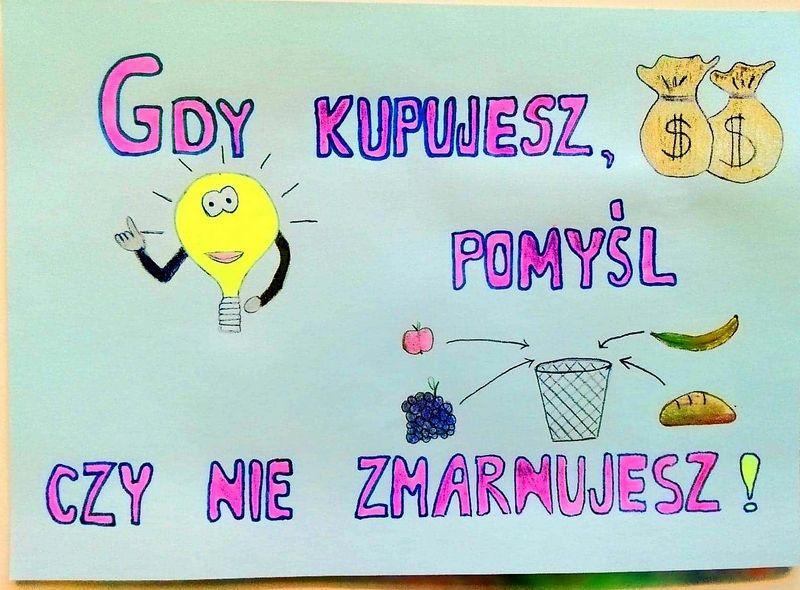 GDY KUPUJESZ,
$ $
POMYŚL
CZY NIE ZMARNUJESZ!